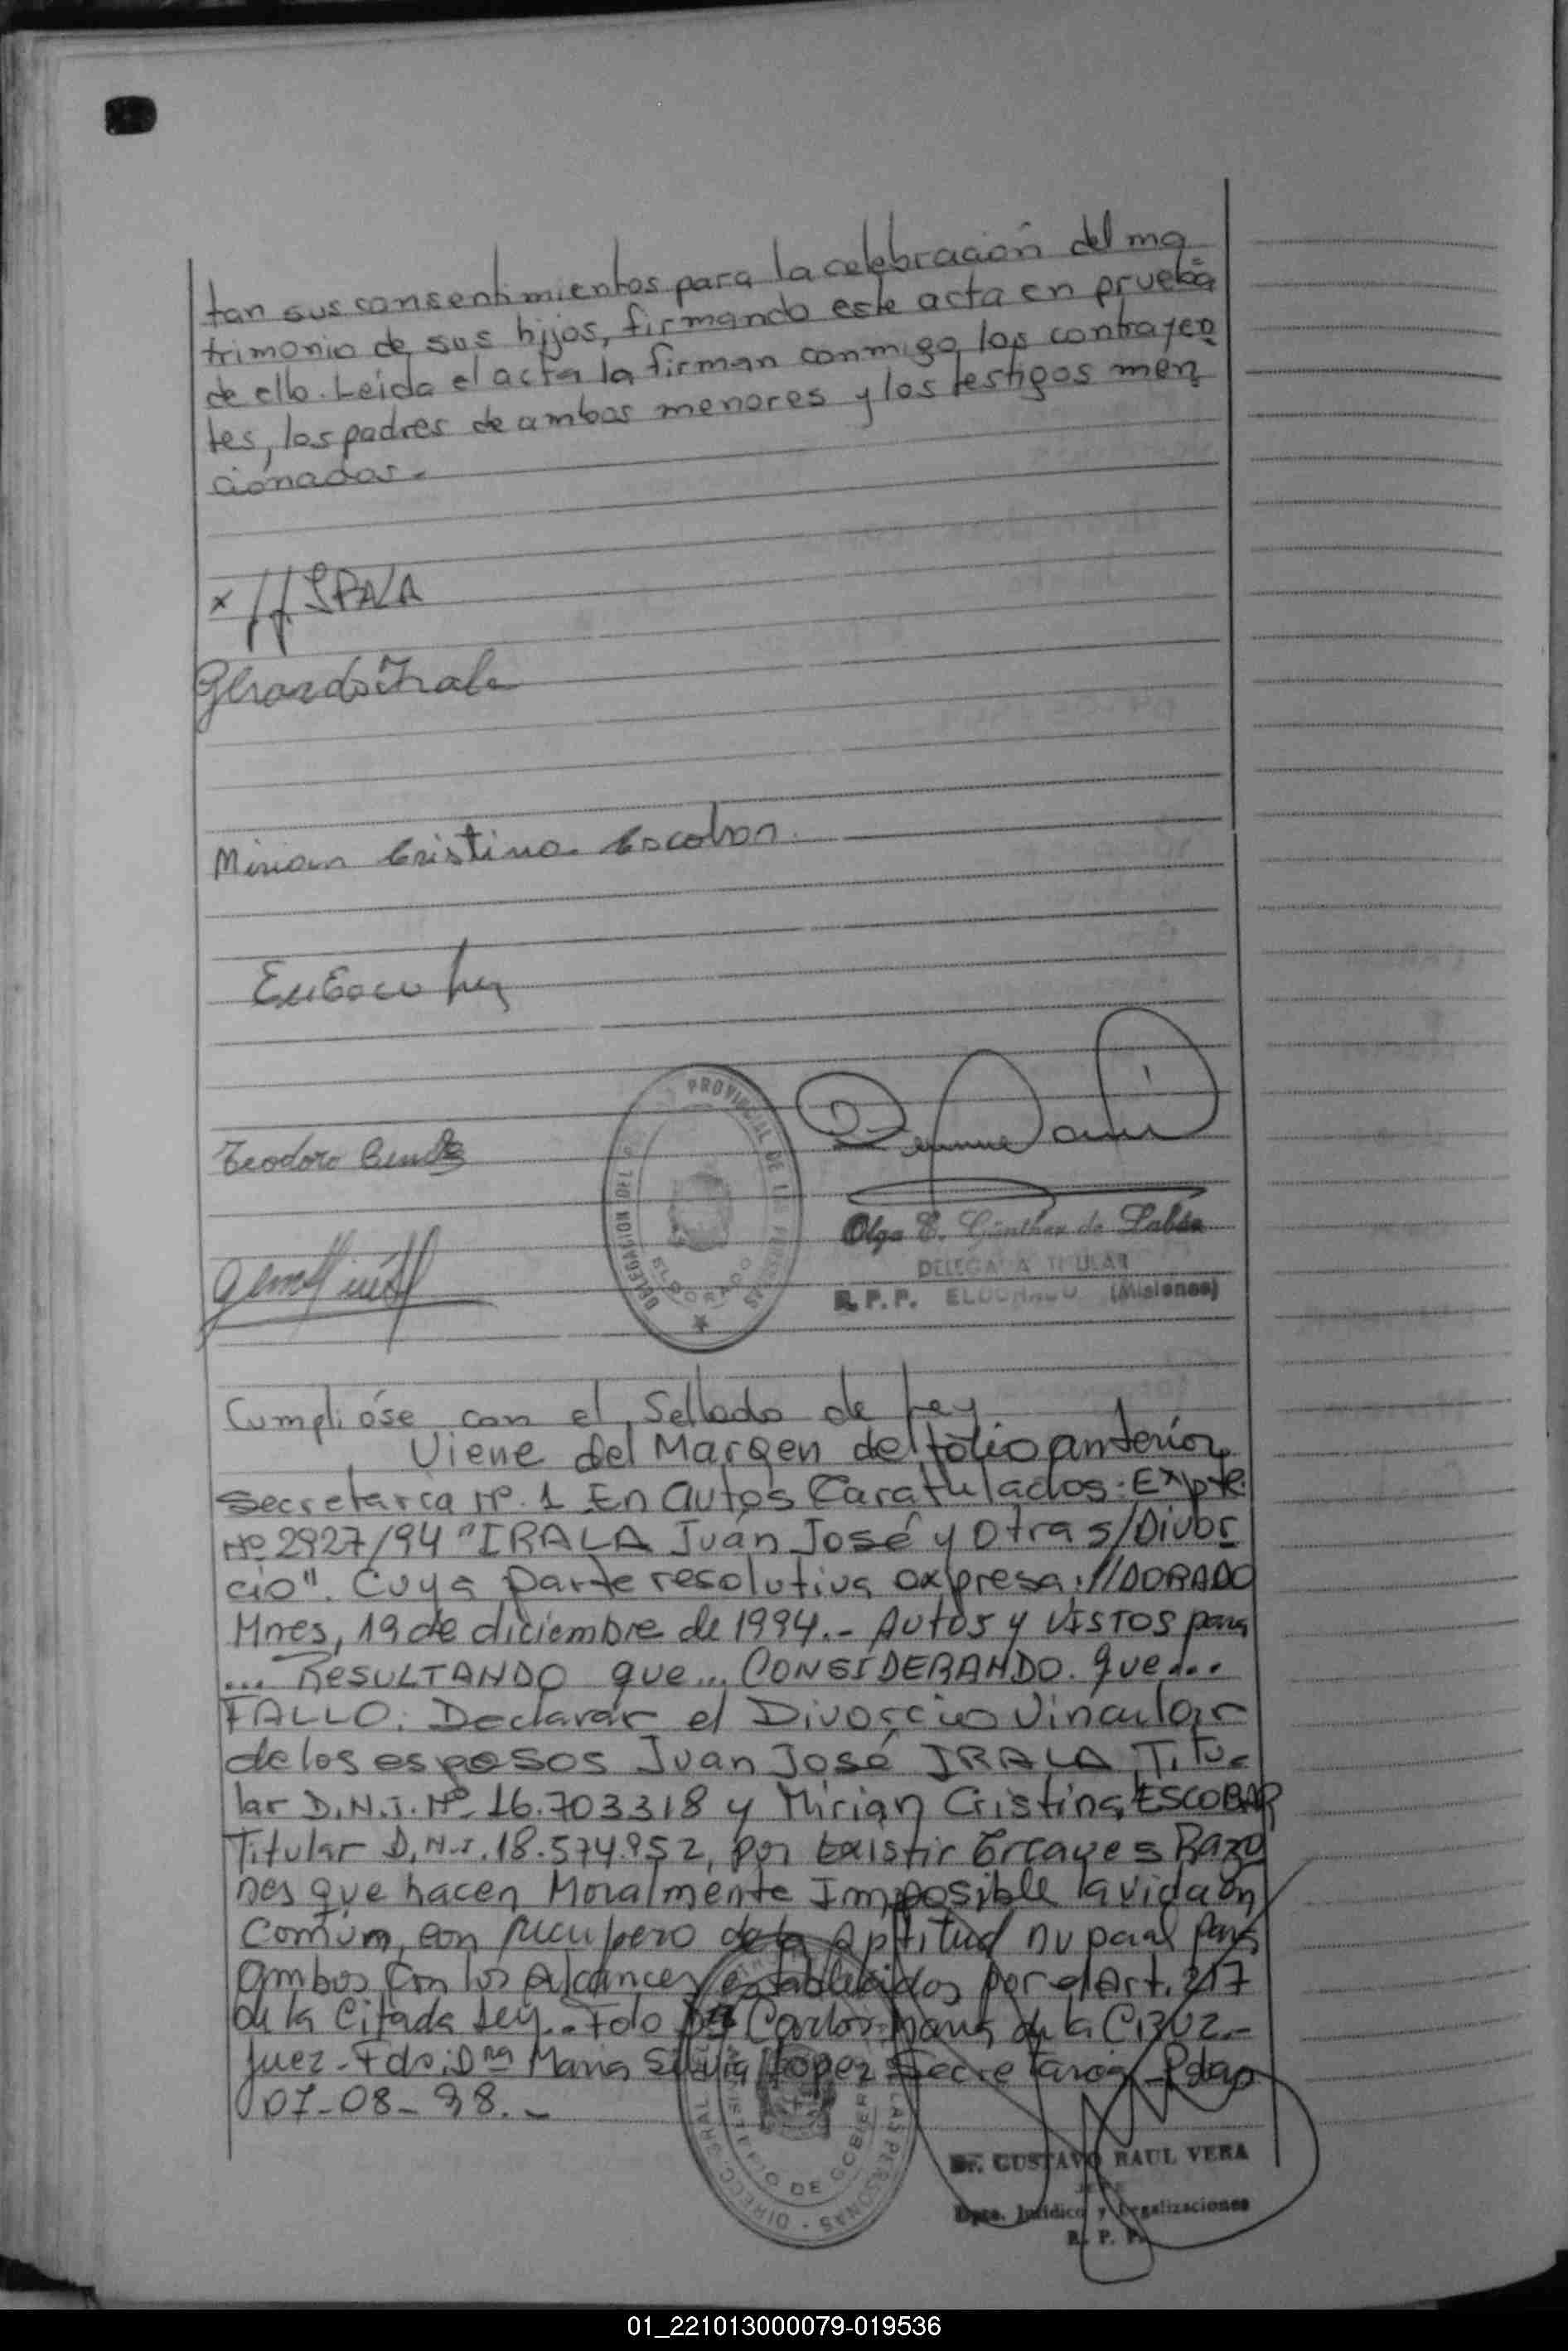 tan sus consentimientos para la celebración del ma
trimonio de sus hijos, firmando este acta en prueba
de ello. Leída el acta la firman conmigo, los contrayen
tes, los padres de ambos menores y los testigos men
cionados.-
x JJ IRALA
Gerardo Irala
Mirian Cristina Escobar.
Teodoro
DELEGACION DEL PROVINCIAL DE LAS PERSONAS
ELDORADO
Olga E. Günther de
DELEGADA TITULAR
R. P. P. ELDORADO (Misiones)
Cumplióse con el Sellado de Ley
Viene del Margen del folio anterior
Secretaria Nº. 1 En autos Caratulados: Expte.
Nº 2927/94 "IRALA Juan José y Otra s/Divor
cio". Cuya parte resolutiva expresa: //DORADO
Mnes, 19 de diciembre de 1994.- Autos y VISTOS para
... RESULTANDO que... CONSIDERANDO. que...
FALLO: Declarar el Divorcio Vincular
de los esposos Juan José IRALA, Titu-
lar D.N.I. Nº 16.703318 y Mirian Cristina ESCOBAR
Titular D.N.I. 18.574.952, por Existir Graves Razo
nes que hacen Moralmente Imposible la vida en
Común, con recupero de la aptitud nupcial para
ambos con los Alcances establecidos por el Art. 217
de la Citada Ley.- Fdo Dr Carlos María de la Cruz.-
Juez - Fdo: Dra María Silvia Lopez Secretaria - Pdas
07-08-98.-
DIRECC. GRAL. LAS PERSONAS
MINISTERIO DE GOBIERNO
Dr. GUSTAVO RAUL VERA
JEFE
Dpto. Jurídico y Legalizaciones
R. P. P.
01_221013000079-019536